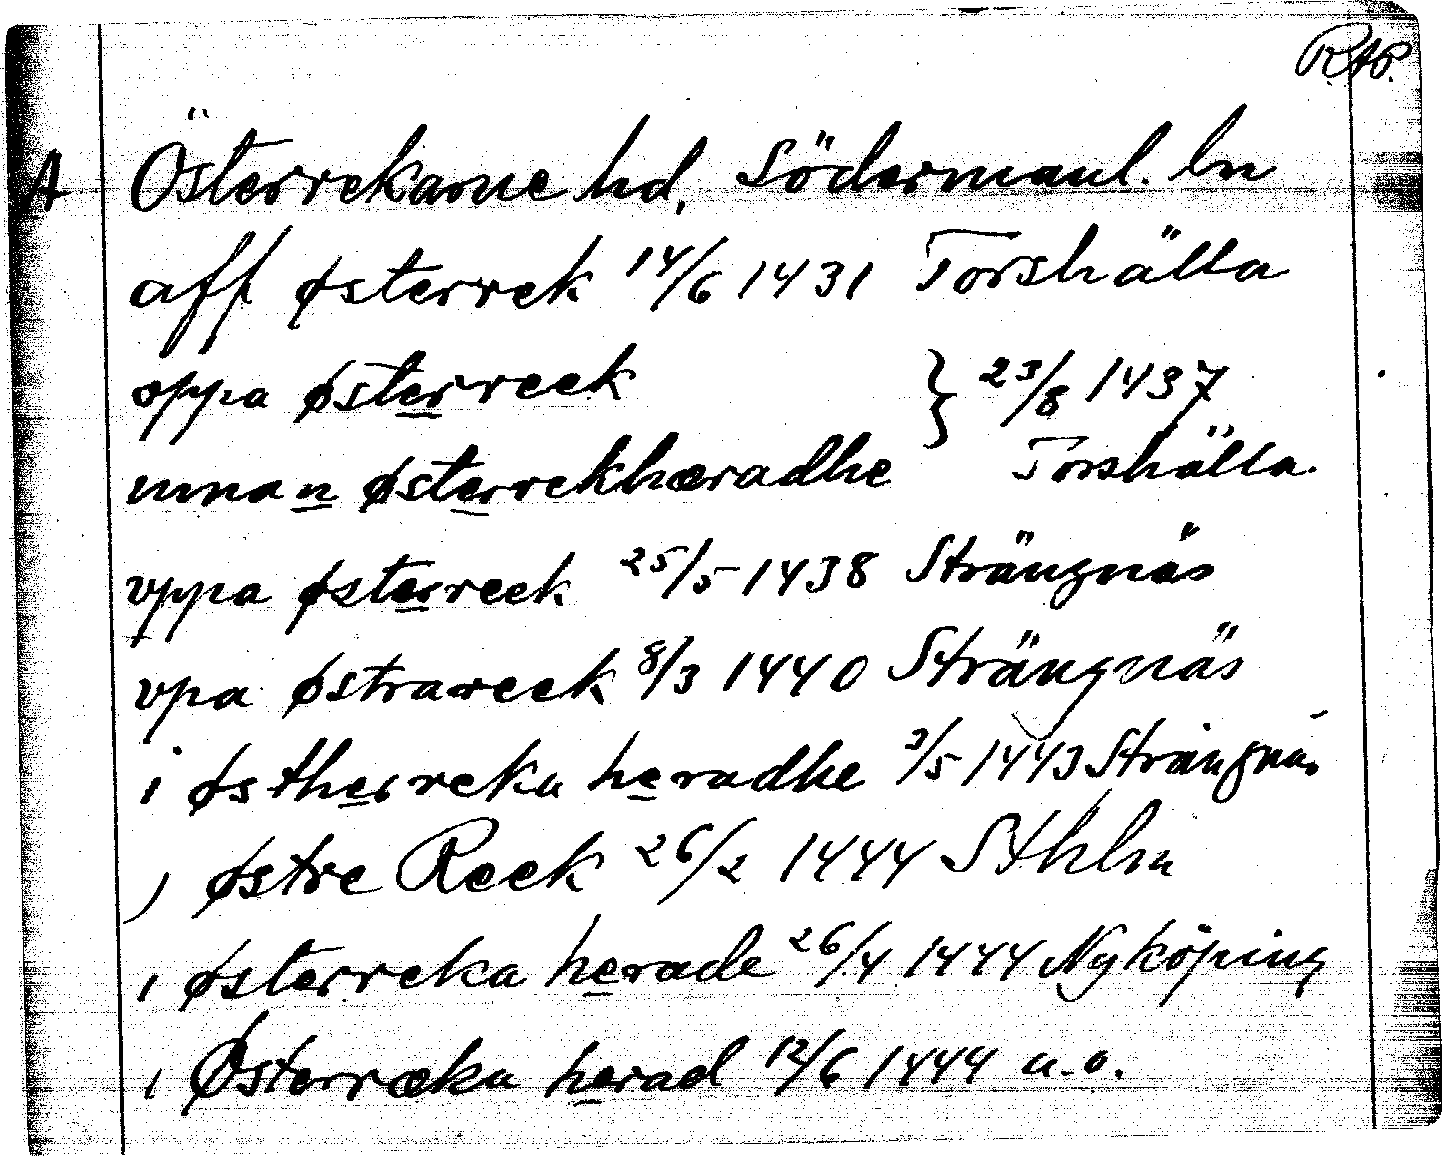 RAP.
A Österrekarne hd, Södermanl. ln
aff østerrek 14/6 1431 Torshälla
oppa østerreek } 23/8 1437
innan østerrekhæradhe Torshälla.
vppa østerreek 25/5 1438 Strängnäs
vpa østrareek 8/3 1440 Strängnäs
i østherreka heradhe 3/5 1443 Strängnäs
j østre Reek 26/2 1444 Sthlm
i østerreka herade 26/4 1444 Nyköping
i Østerræka herad 12/6 1444 u.o.